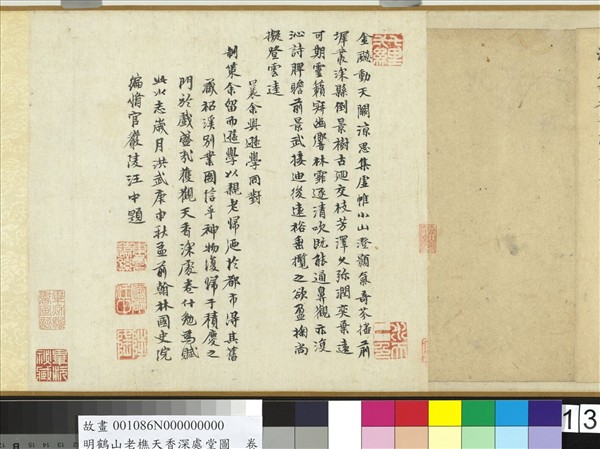 金飈動天闕涼思集虛帷小山澄顥氣奇芬播前
墀叢深懸倒景樹古迴交枝芳澤久弥潤奕葉遠
可期靈籟寂幽響林霏逐清吹既能通鼻觀亦復
沁詩脾瞻前景武接迪後遠裕垂攬之欲盈掬尚
擬登雲逵
曩余與遜學同對
制策余留而遜學以親老歸迺於都市得其舊
藏招溪別業圖信乎神物復歸于積慶之
門於戲盛哉獲觀天香深處卷什勉為賦
此以志歲月洪武庚申秋孟前翰林國史院
編脩官嚴陵汪中題
故畫 001086N000000000
明鶴山老樵天香深處堂圖 卷
13